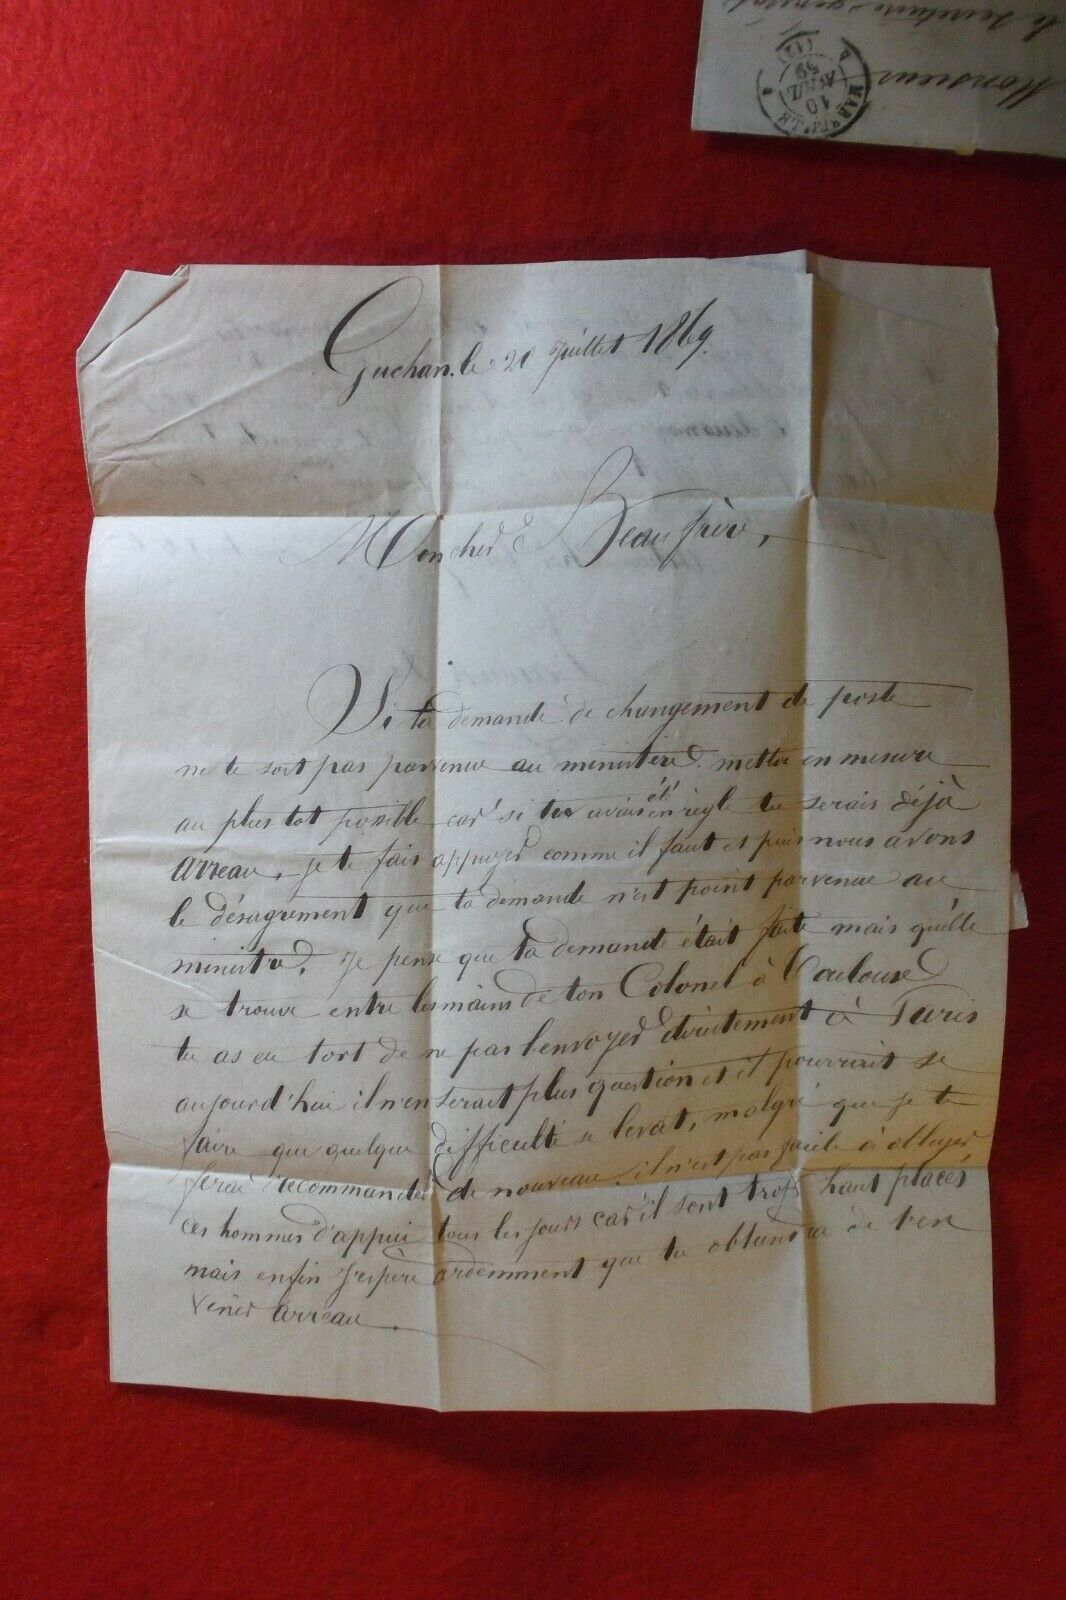 Monsieur
le Secrétaire général
10
AVRIL
59
(12)
Guchan, le 21 Juillet 1869.
Mon cher Beaufrère,
Si ta demande de changement de poste
ne te soit pas parvenue au ministère. mettre en mesure
au plus tot possible car si tu avais été en règle tu serais déjà
Arreau, je te fais appuyer comme il faut et puis nous avons
le désagrement que ta demande n'est point parvenue au
ministre. Je pense que ta demande était faite mais qu'elle
se trouve entre les mains de ton Colonel à Toulouse
tu as eu tort de ne pas l'envoyer directement à Paris
aujourd'hui il n'en serait plus question et il pourrait se
faire que quelque difficulté se levat, malgré que je te
ferai recommander de nouveau. il n'est pas facile à obliger
ces hommes d'appui tous les jours car il sont trop haut placés,
mais enfin J'espère ardemment que tu obtiendra de t'en
venir Arreau.